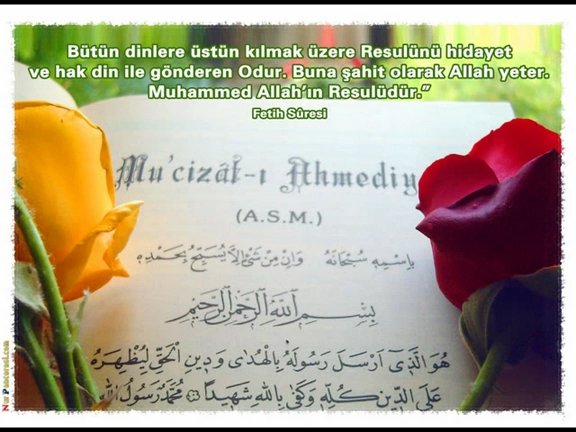 Bütün dinlere üstün kılmak üzere Resulünü hidayet
ve hak din ile gönderen Odur. Buna şahit olarak Allah yeter.
Muhammed Allah'ın Resulüdür.”
Fetih Sûresi
Mu'cizât-ı Ahmediy
(A.S.M.)
بِاسْمِهِ سُبْحَانَهُ وَاِنْ مِنْ شَىْءٍ اِلَّا يُسَبِّحُ بِحَمْدِهِ
بِسْمِ اللّٰهِ الرَّحْمٰنِ الرَّحِيمِ
هُوَ الَّذِى اَرْسَلَ رَسُولَهُ بِالْهُدٰى وَدِينِ الْحَقِّ لِيُظْهِرَهُ
عَلَى الدِّينِ كُلِّهِ وَكَفٰى بِاللّٰهِ شَهِيدًا ۞ مُحَمَّدٌ رَسُولُ اللّٰهِ
Nur Penceresi.com